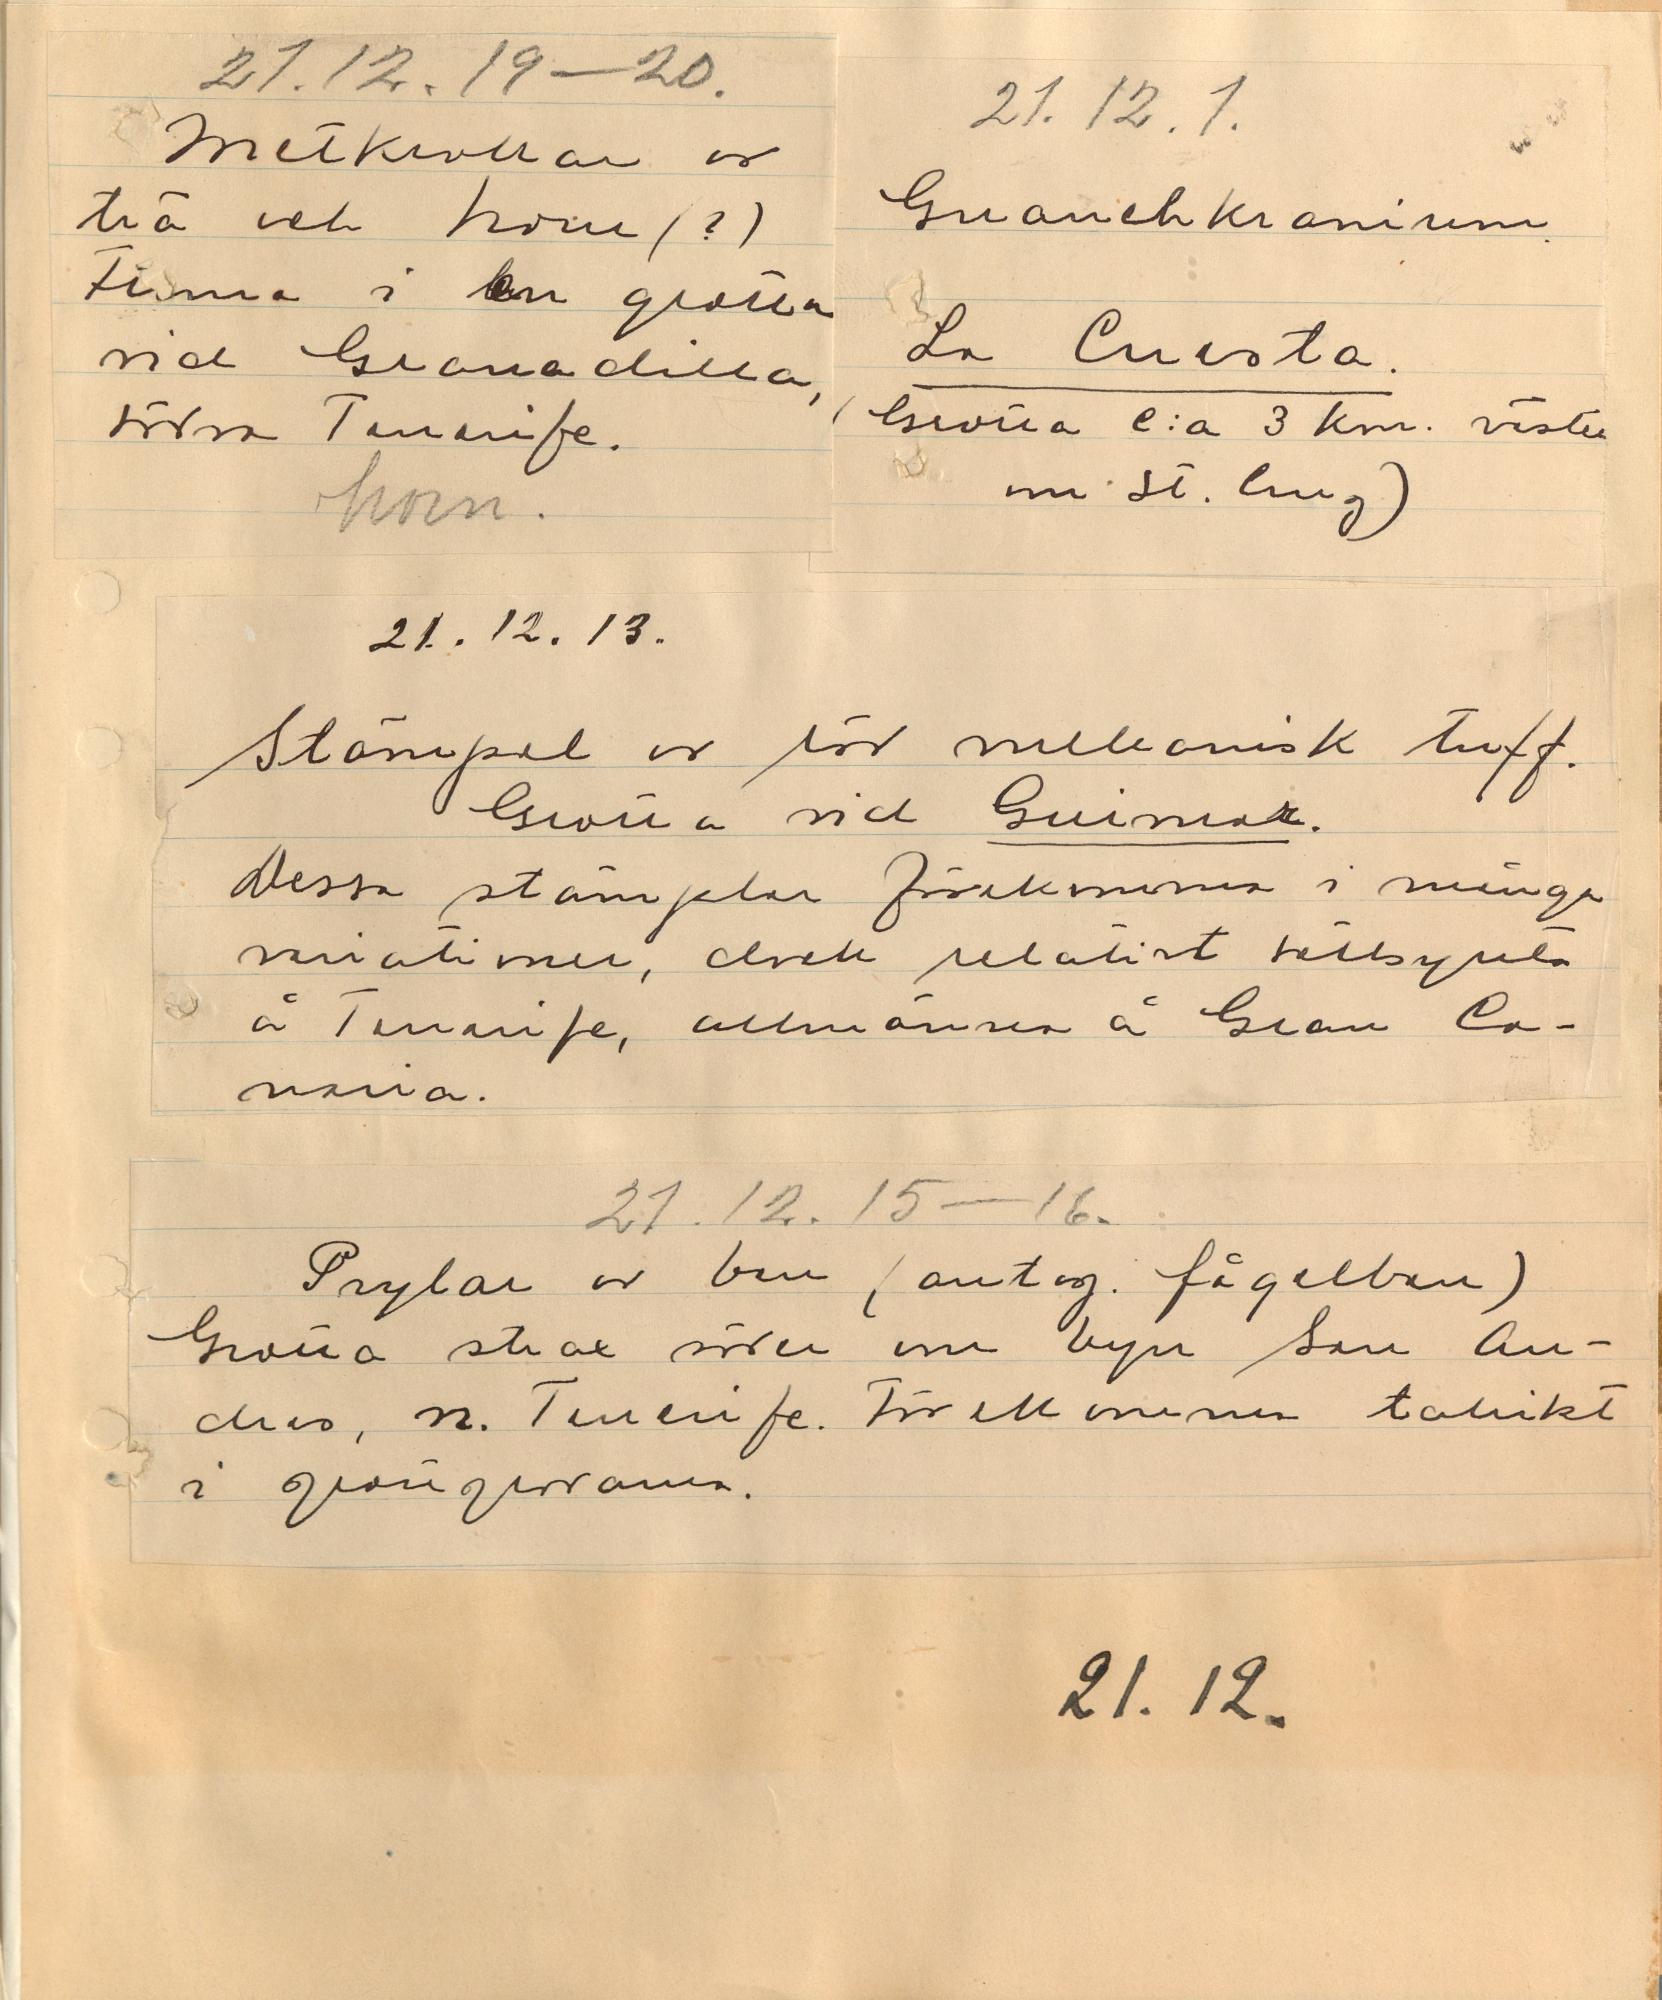 21.12.19—20.
Metkrokar av
trä och horn (?)
Finna i en grotta
vid Granadilla,
södra Tenerife.
horn.
21.12.1.
Guanchkranium.
La Cuesta.
(Grotta c:a 3 km. väster
om St. Cruz)
21.12.13.
Stämpel av röd vulkanisk tuff.
Grotta vid Guimar.
Dessa stämplar förekomma i många
variationer, dock relativt sällsynta
å Tenerife, allmänna å Gran Ca-
naria.
21.12.15—16.
Prylar av ben (antag. fågelben)
Grotta strax söder om byn San An-
dres, n. Tenerife. Förekomma talrikt
i grottgravarna.
21.12.